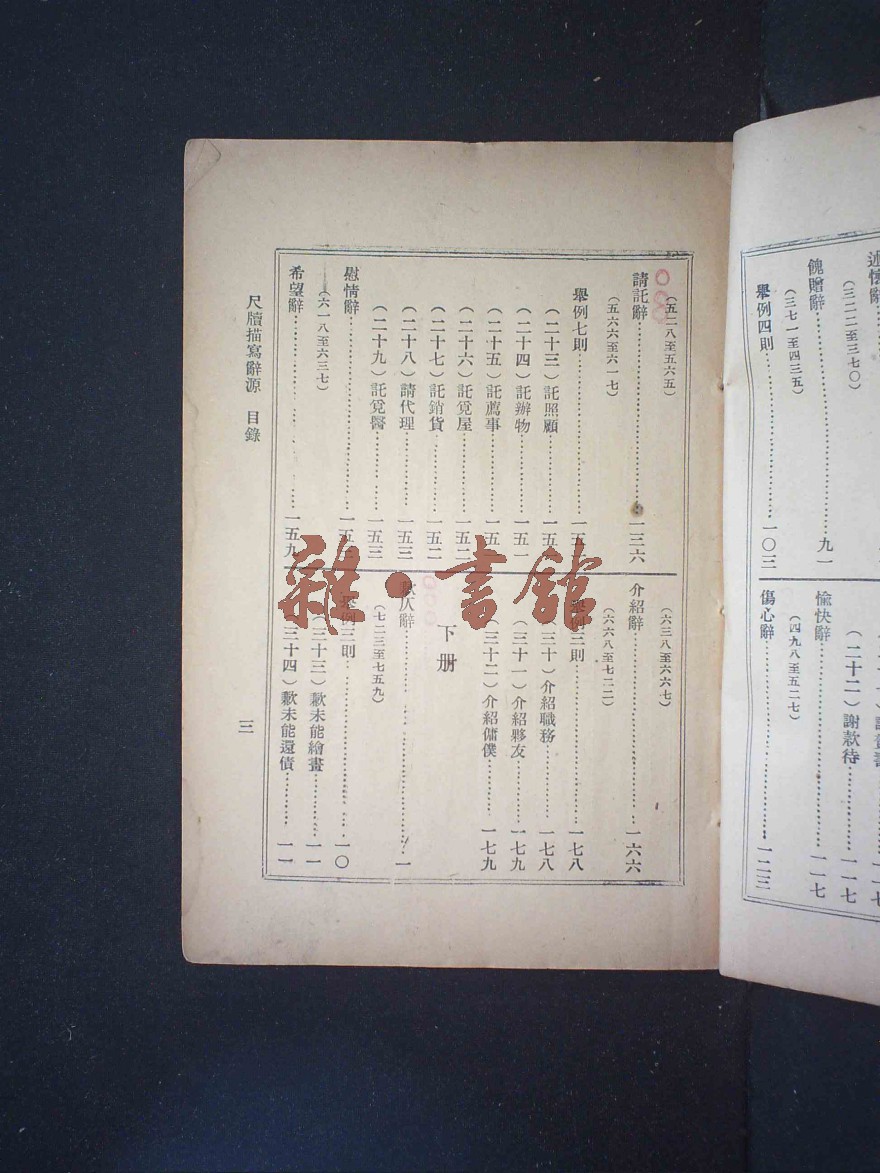 述懷辭
(三二二至三七〇)
餽贈辭……九一
(三七一至四三五)
舉例四則……一〇三
(二十二)謝款待……一一七
愉快辭……一一七
(四九八至五二七)
傷心辭……一二三
(五二八至五六五)
請託辭……一三六
(五六六至六一七)
舉例七則……一五
(二十三)託照顧……一五
(二十四)託辦物……一五一
(二十五)託薦事……一五
(二十六)託覓屋……一五二
(二十七)託銷貨……一五二
(二十八)請代理……一五三
(二十九)託覓醫……一五三
慰情辭……一五
(六一八至六三七)
希望辭……一五九
(六三八至六六七)
介紹辭……一六六
(六六八至七二二)
舉例三則……一七八
(三十)介紹職務……一七八
(三十一)介紹夥友……一七九
(三十二)介紹傭僕……一七九
下册
歉仄辭……一
(七二三至七五九)
舉例三則……一〇
(三十三)歉未能繪畫……一一
(三十四)歉未能還債……一一
尺牘描寫辭源 目錄
三
雜·書館